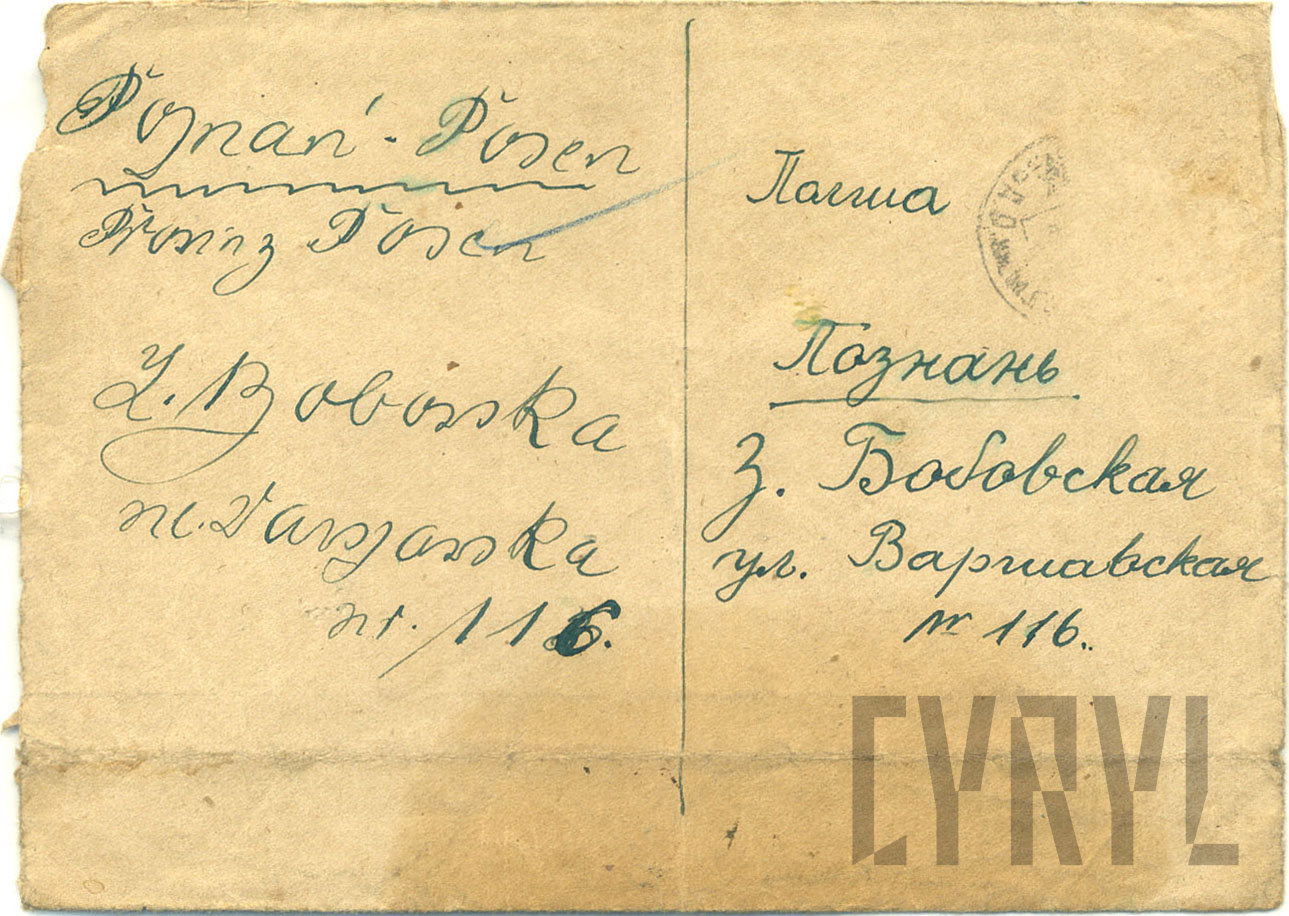 Poznań - Posen
Provinz Posen
Z. Bobowska
ul. Warszawska
nr. 116.
Полша
Познань
З. Бобовская
ул. Варшавская
№ 116.
CYRYL